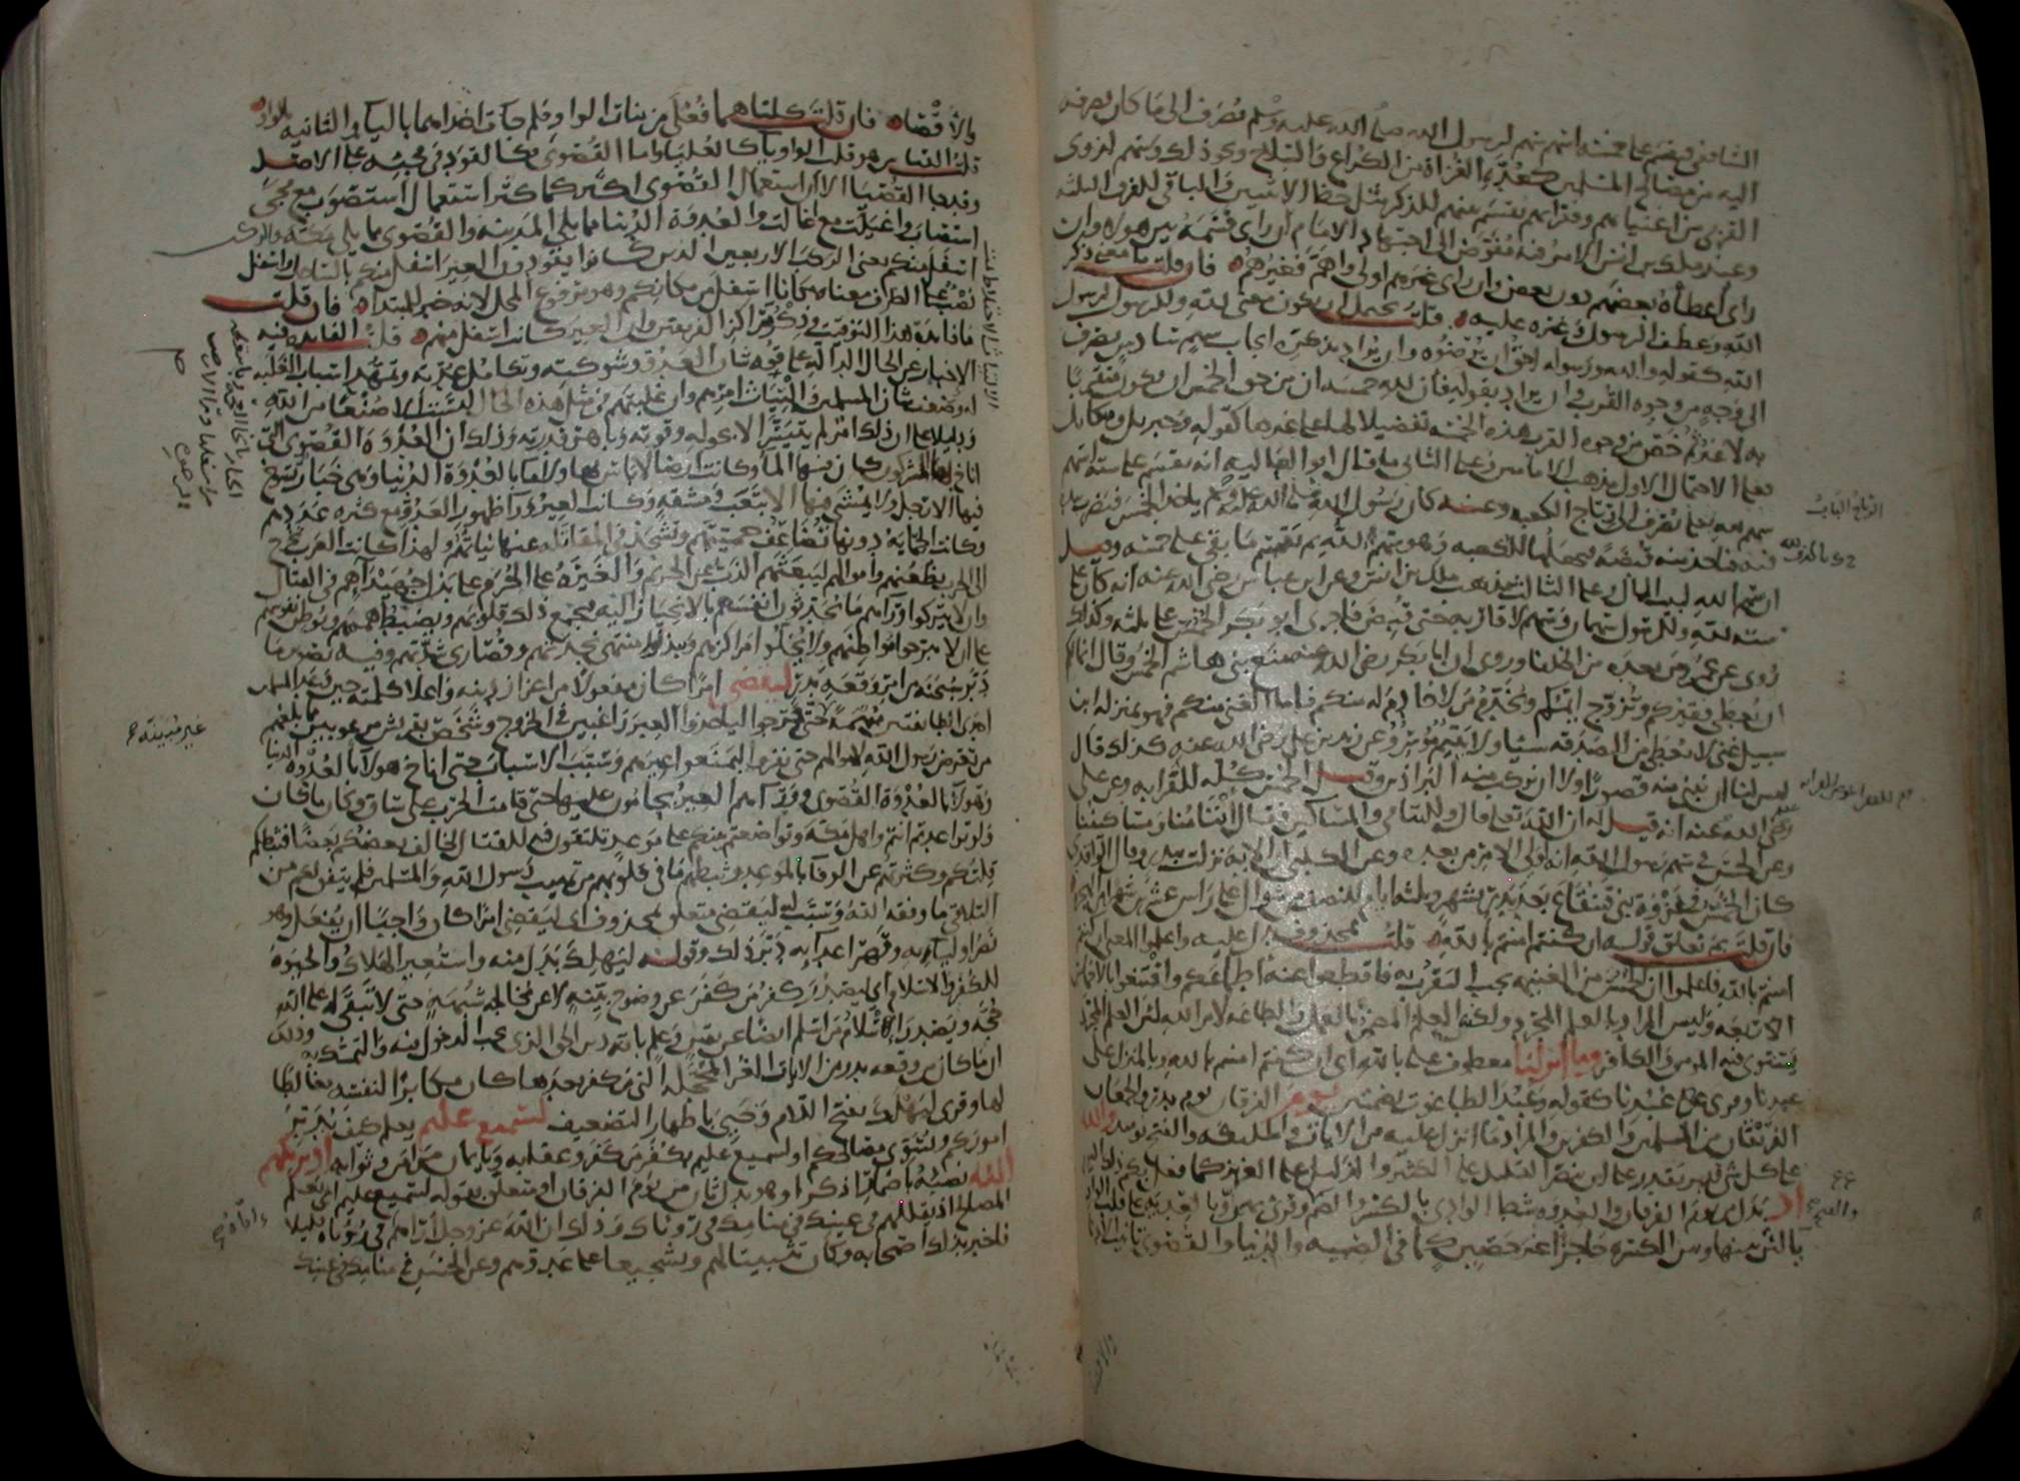 الشافعي فيقسم على خمسة اسهم سهم لرسول الله صلى الله عليه وسلم يصرف الى ما كان يصرفه
اليه من مصالح المسلمين كعدة الغزاة من الكراع والسلاح ونحو ذلك وسهم لذوي
القربى من اغنيايهم وفقرايهم يقسم بينهم للذكر مثل حظ الانثيين والباقي للفرق الثلث
وعند ملك بن انس الامر فيه مفوض الى اجتهاد الامام ان راى قسمه بين هولاء وان
راى اعطاه بعضهم دون بعض وان راى غيرهم اولى واهم فغيرهم فان قلت ما معنى ذكر
الله وعطف الرسول وغيره عليه قلت يحتمل ان يكون معنى لله وللرسول لرسول
الله كقوله والله ورسوله احق ان يرضوه وان يراد بذكره ايجاب سهم سادس يصرف
الى وجه من وجوه القرب وان يراد بقوله فان لله خمسه ان من حق الخمس ان يكون متقربا
به لا غير ثم خص من وجوه القرب هذه الخمسة تفضيلا لها على غيرها كقوله وجبريل وميكايل
فعلى الاحتمال الاول مذهب الامامين وعلى الثاني ما قال ابو العاليه انه يقسم على ستة اسهم
سهم لله تعلى يصرف الى رتاج الكعبه وعنه كان رسول الله صلى الله عليه وسلم ياخذ الخمس فيضرب بيده
فيه فياخذ منه قبضة فيجعلها للكعبه وهو سهم الله ثم يقسم ما بقي على خمسه وقيل
ان سهم الله لبيت المال وعلى الثالث مذهب ملك بن انس وعن ابن عباس رضي الله عنه انه كان على
سته لله وللرسول سهمان وسهم لاقاربه حتى قبض فاجرى ابو بكر الخمس على ثلثه وكذلك
روى عن عمر ومن بعده من الخلفا وروى ان ابا بكر رضي الله عنه منع بني هاشم الخمس وقال انما لكم
ان يعطى فقيركم وتزوج ايمكم ويخدم من لا خادم له منكم فاما الغني منكم فهو بمنزله ابن
سبيل غني لا يعطى من الصدقه شيا ولا يتيم موسر وعن زيد بن علي رضي الله عنه كذلك قال
ليس لنا ان نبني منه قصورا ولا ان نركب منه البراذين وقيل الخمس كله للقرابه وعن علي
رضي الله عنه انه قيل له ان الله تعلى قال واليتامى والمساكين فقال ايتامنا ومساكيننا
وعن الحسن في سهم رسول الله انه لولي الامر من بعده وعن الكلبي ان الايه نزلت ببدر وقال الواقدي
كان الخمس في غزوة بني قينقاع بعد بدر بشهر وثلثة ايام للنصف من شوال على راس عشرين شهرا من الهجرة
فان قلت بم تعلق قوله ان كنتم امنتم بالله قلت بمحذوف يدل عليه واعلموا المعنى ان كنتم
امنتم بالله فاعلموا ان الخمس من الغنيمه يجب التقرب به فاقطعوا عنه اطماعكم واقتنعوا بالاخماس
الاربعه وليس المراد بالعلم المجرد ولكنه العلم المضمن بالعمل والطاعه لامر الله لان العلم المجرد
يستوي فيه المومن والكافر وما انزلنا معطوف على بالله اي ان كنتم امنتم بالله وبالمنزل على
عبدنا وقرى على عبدنا كقوله وعبد الطاغوت بضمتين يوم الفرقان يوم بدر والجمعان
الفريقان من المسلمين والكفرين والمراد ما انزل عليه من الايات والمليكه والفتح يوميذ والله
على كل شي قدير يقدر على ان ينصر القليل على الكثير والذليل على العزيز كما فعل بكم ذلك اليوم
اذ بدل من يوم الفرقان والعدوه شط الوادي بالكسر والضم والفتح وقرى بهن وبالعديه على قلب الواو
يا لان بينها وبين الكسره حاجزا غير حصين كما في الصبيه والدنيا والقصوى تانيث الادنى
والاقصى فان قلت كلتاهما فعلى من بنات الواو فلم جات احداهما باليا والثانيه بالواو
قلت القياس هو قلب الواو يا كالعليا واما القصوى فكالقود في مجيئه على الاصل
وقد جا القصيا الا ان استعمال القصوى اكثر كما كثر استعمال استصوب مع مجي
استصاب واغيلت مع اغالت والعدوة الدنيا مما يلي المدينة والقصوى مما يلي مكة والركب
اسفل منكم يعني الركب الاربعين الذين كانوا يقودون العير اسفل منكم بالساحل واسفل
نصب على الظرف معناه مكانا اسفل من مكانكم وهو مرفوع المحل لانه خبر المبتدا فان قلت
ما فايدة هذا التوقيت وذكر مراكز الفريقين وان العير كانت اسفل منهم قلت الفايده فيه
الاخبار عن الحال الداله على قوه شان العدو وشوكته وتكامل عدته وتمهد اسباب الغلبه
له وضعف شان المسلمين والتيات امرهم وان غلبتهم في مثل هذه الحال ليست الا صنعا من الله
ودليلا على ان ذلك امر لم يتيسر الا بحوله وقوته وباهر قدرته وذلك ان العدوة القصوى التي
اناخ بها المشركون كان فيها الما وكانت ارضا لا باس بها ولا ما بالعدوة الدنيا وهي خبار تسوخ
فيها الارجل ولا يمشى فيها الا بتعب ومشقه وكانت العير ورا ظهور العدو مع كثره عددهم
وكانت الحماية دونها تضاعف حميتهم وتشحذ في المقاتلة عنها نياتهم ولهذا كانت العرب تخرج
الى الحرب بظعنهم واموالهم ليبعثهم الذب عن الحريم والغيرة على الحرم على بذل جهيداهم في القتال
وان لا يتركوا وراهم ما يحدثون انفسهم بالانحياز اليه فيجمع ذلك قلوبهم ويضبط هممهم ويوطن نفوسهم
على ان لا يبرحوا مواطنهم ولا يخلوا مراكزهم ويبذلوا منتهى نجدتهم وقصارى شدتهم وفيه تصوير ما
دبر سبحنه من امر وقعه بدر ليقضي امرا كان مفعولا من اعزاز دينه واعلا كلمته حين وعد المسلمين
احدى الطايفتين مبهمة حتى خرجوا لياخذوا العير راغبين في الخروج وشخص بقريش مرعوبين مما بلغهم
من تعرض رسول الله لاموالهم حتى نفروا ليمنعوا عيرهم وسبب الاسباب حتى اناخ هولا بالعدوه الدنيا
وهولا بالعدوة القصوى وورآهم العير يحامون عليها حتى قامت الحرب على ساق وكان ما كان
ولو تواعدتم انتم واهل مكه وتواضعتم بينكم على موعد تلتقون فيه للقتال لخالف بعضكم بعضا فثبطكم
قلتكم وكثرتهم عن الوفا بالموعد وثبطهم ما في قلوبهم من تهيب رسول الله والمسلمين فلم يتفق لهم من
التلاقي ما وفقه الله وسبب له ليقضي متعلق بمحذوف اي ليقضي امرا كان واجبا ان يفعل وهو
نصر اوليايه وقهر اعدايه دبر ذلك وقوله ليهلك بدل منه واستعير الهلاك والحيوة
للكفر والاسلام اي ليصدر كفر من كفر عن وضوح بينه لا عن مخالجه شبهة حتى لا تبقى له على الله
حجه ويصدر اسلام من اسلم ايضا عن يقين وعلم بانه دين الحق الذي يجب الدخول فيه والتمسك به وذلك
ان ما كان من وقعه بدر من الايات الغر المحجله التي من كفر بعدها كان مكابرا لنفسه مغالطا
لها وقرى ليهلك بفتح اللام وحيي باظهار التضعيف لسميع عليم يعلم كيف يدبر
اموركم ويسوي مصالحكم او لسميع عليم بكفر من كفر وعقابه وبايمان من امن وثوابه اذ يريكهم
الله نصبه باضمار اذكر او هو بدل ثان من يوم الفرقان او متعلق بقوله لسميع عليم اي يعلم
المصالح اذ يقللهم في عينك في منامك في روياك وذلك ان الله عز وجل اراهم في روياه قليلا
فاخبر بذلك اصحابه وكان تثبيتا لهم وتشجيعا على عدوهم وعن الحسن في منامك في عينك
الرتاج الباب
غير مبينه